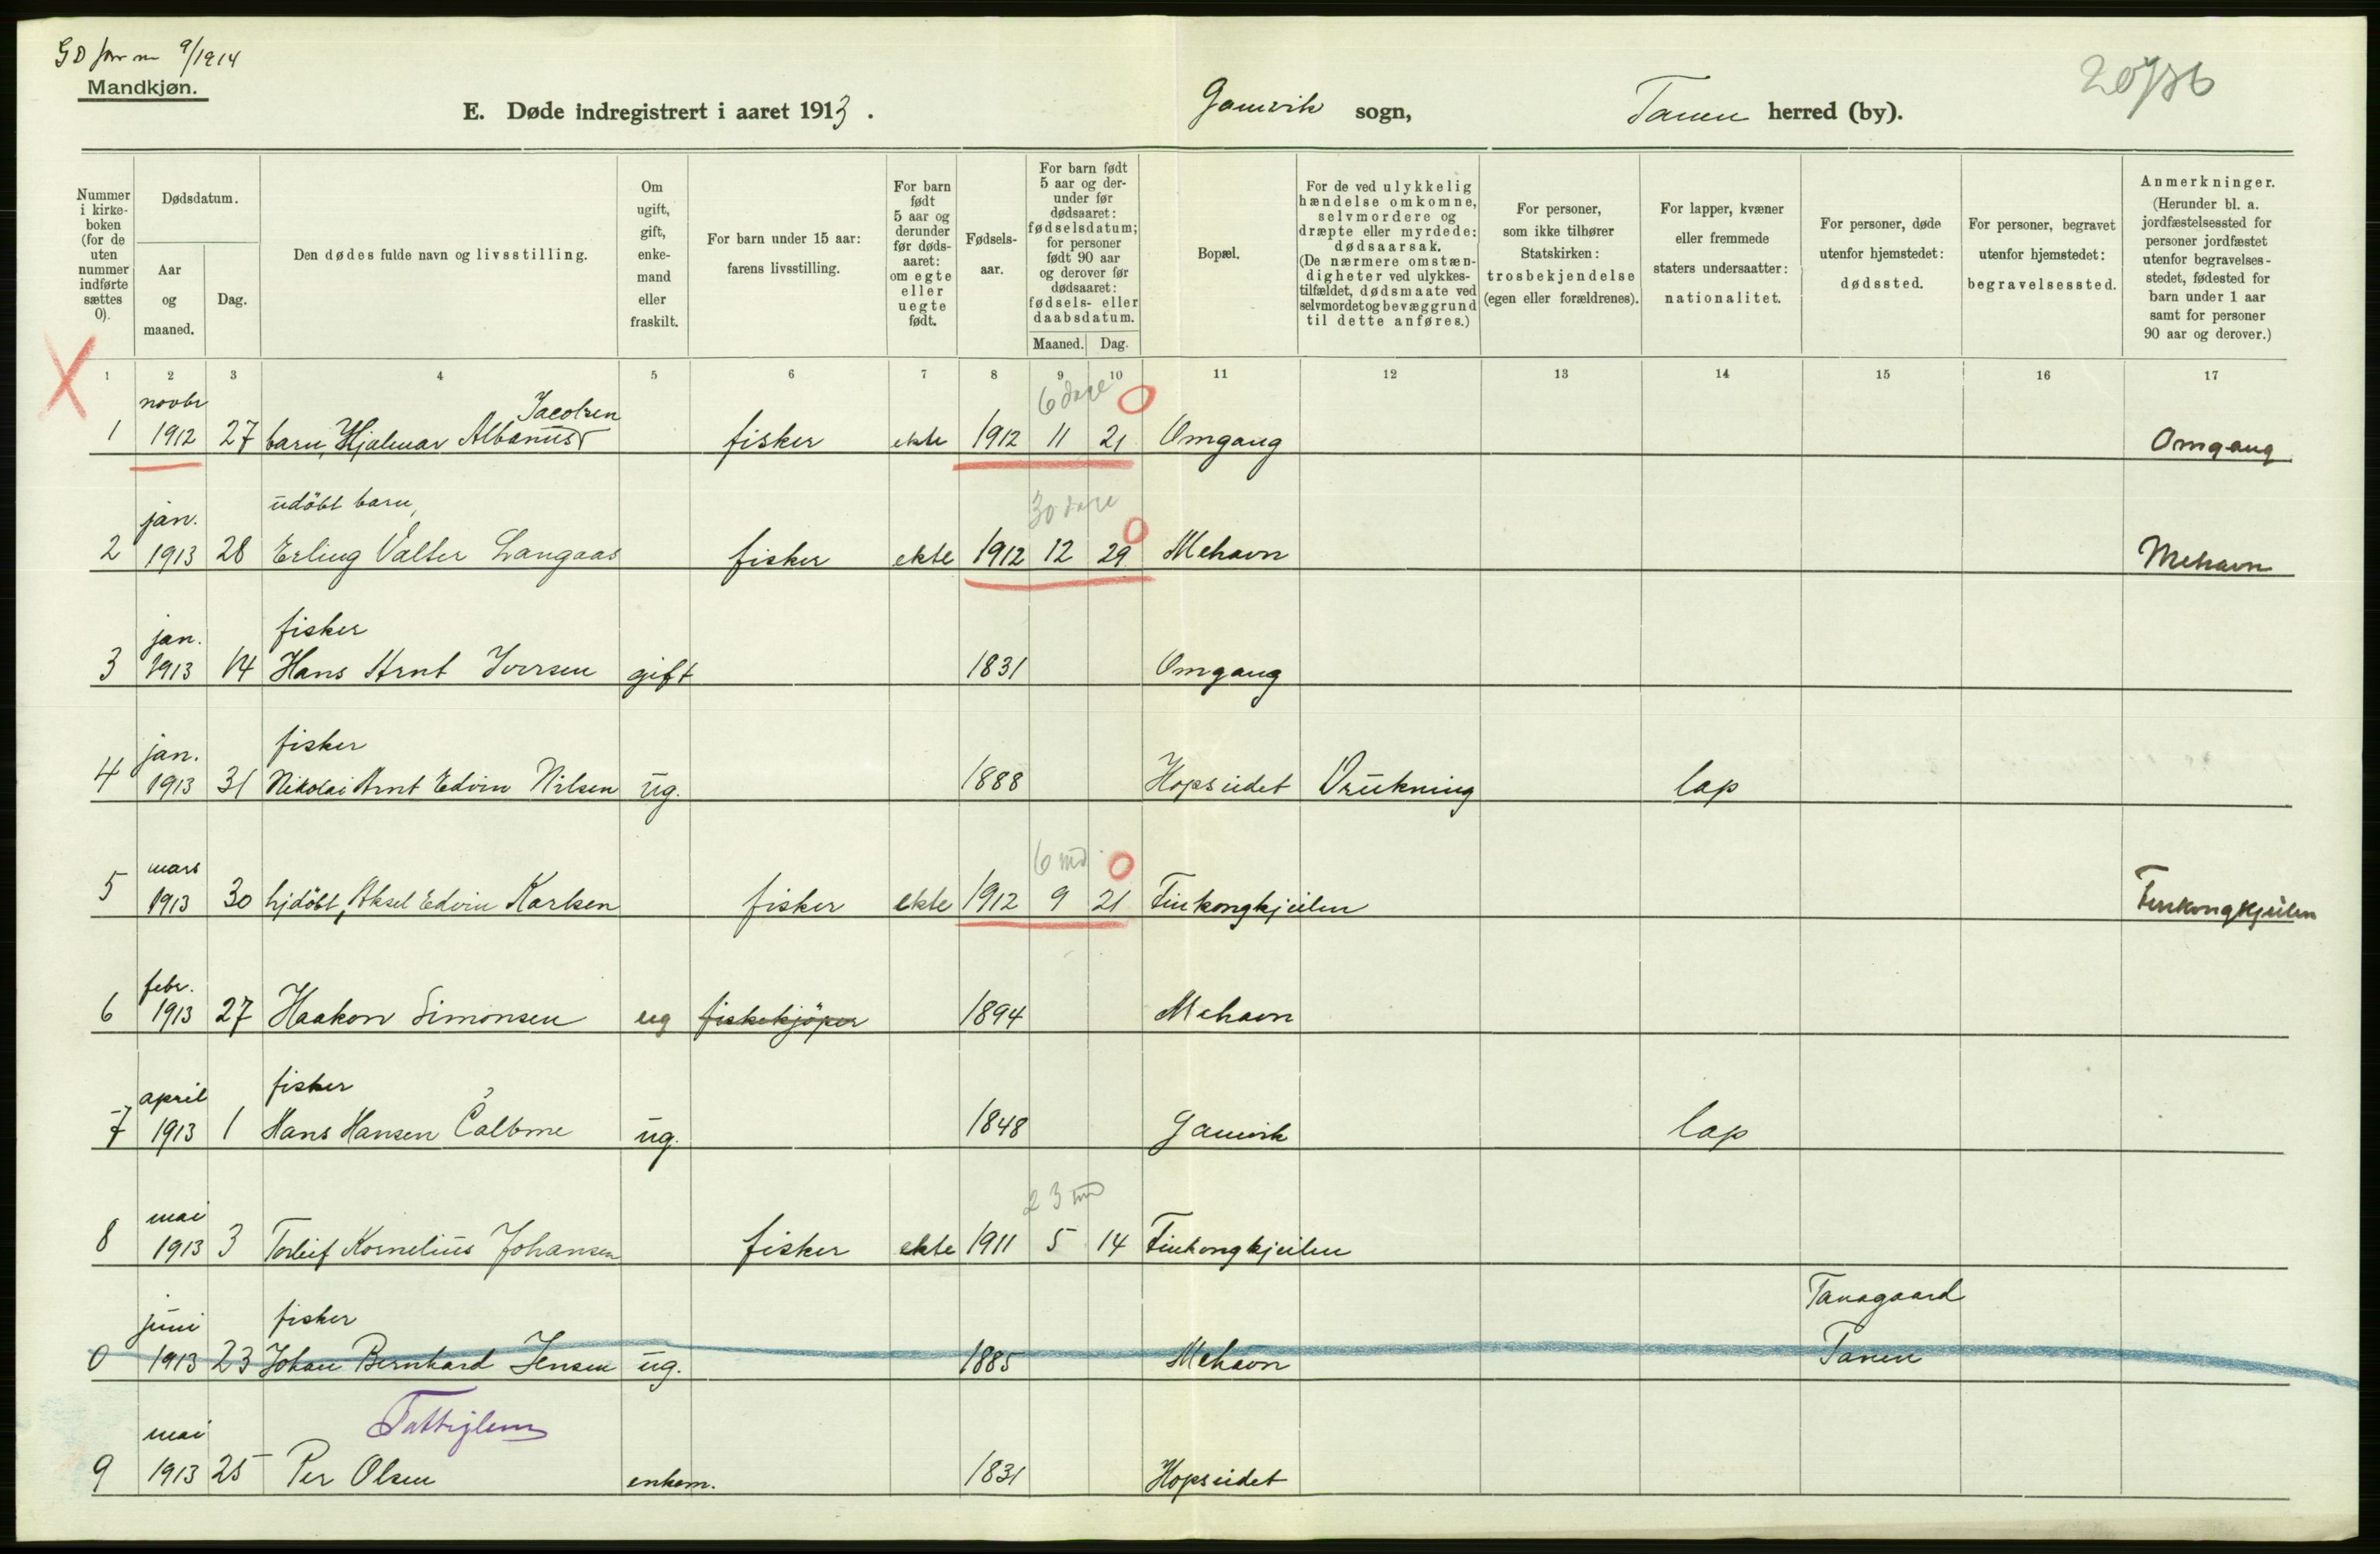 9/1914
Mandkjøn.
E. Døde indregistrert i aaret 1913. Gamvik sogn, Tanen herred (by).
Nummer i kirkeboken (for de uten nummer indførte sættes 0).
Dødsdatum.
Aar og maaned.
Dag.
Den dødes fulde navn og livsstilling.
Om ugift, gift, enkemand eller fraskilt.
For barn under 15 aar: farens livsstilling.
For barn født 5 aar og derunder før dødsaaret: om egte eller uegte født.
Fødselsaar.
For barn født 5 aar og derunder før dødsaaret: fødselsdatum; for personer født 90 aar og derover før dødsaaret: fødsels- eller daabsdatum.
Maaned. Dag.
Bopæl.
For de ved ulykkelig hændelse omkomne, selvmordere og dræpte eller myrdede: dødsaarsak. (De nærmere omstændigheter ved ulykkestilfældet, dødsmaate ved selvmordet og bevæggrund til dette anføres.)
For personer, som ikke tilhører Statskirken: trosbekjendelse (egen eller forældrenes).
For lapper, kvæner eller fremmede staters undersaatter: nationalitet.
For personer, døde utenfor hjemstedet: dødssted.
For personer, begravet utenfor hjemstedet: begravelsessted.
Anmerkninger. (Herunder bl. a. jordfæstelsessted for personer jordfæstet utenfor begravelsesstedet, fødested for barn under 1 aar samt for personer 90 aar og derover.)
1 2 3 4 5 6 7 8 9 10 11 12 13 14 15 16 17
novbr Jacobsen 6 dage
1 1912 27 barn, Hjalmar Albanus fisker ekte 1912 11 21 Omgang Omgang
jan. udöbt barn, 30 dage
2 1913 28 Erling Valter Langaas fisker ekte 1912 12 29 Mehavn Mehavn
jan. fisker
3 1913 14 Hans Arnt Iversen gift 1831 Omgang
jan. fisker
4 1913 31 Nikolai Arnt Edvin Nilsen ug. 1888 Hopseidet Drukning lap
mars 6 md.
5 1913 30 hjdöbt, Aksel Edvin Karlsen fisker ekte 1912 9 21 Finkongkjeilen Finkongkjeilen
febr.
6 1913 27 Haakon Simonsen ug fiskekjöper 1894 Mehavn
april fisker
7 1913 1 Hans Hansen Čalbme ug. 1848 Gamvik lap
mai 23 md
8 1913 3 Torleif Kornelius Johansen fisker ekte 1911 5 14 Finkongkjeilen
juni fisker Tanagaard
0 1913 23 Johan Bernhard Jensen ug. 1885 Mehavn Tanen
mai Fattiglem
9 1913 25 Per Olsen enkem. 1831 Hopseidet